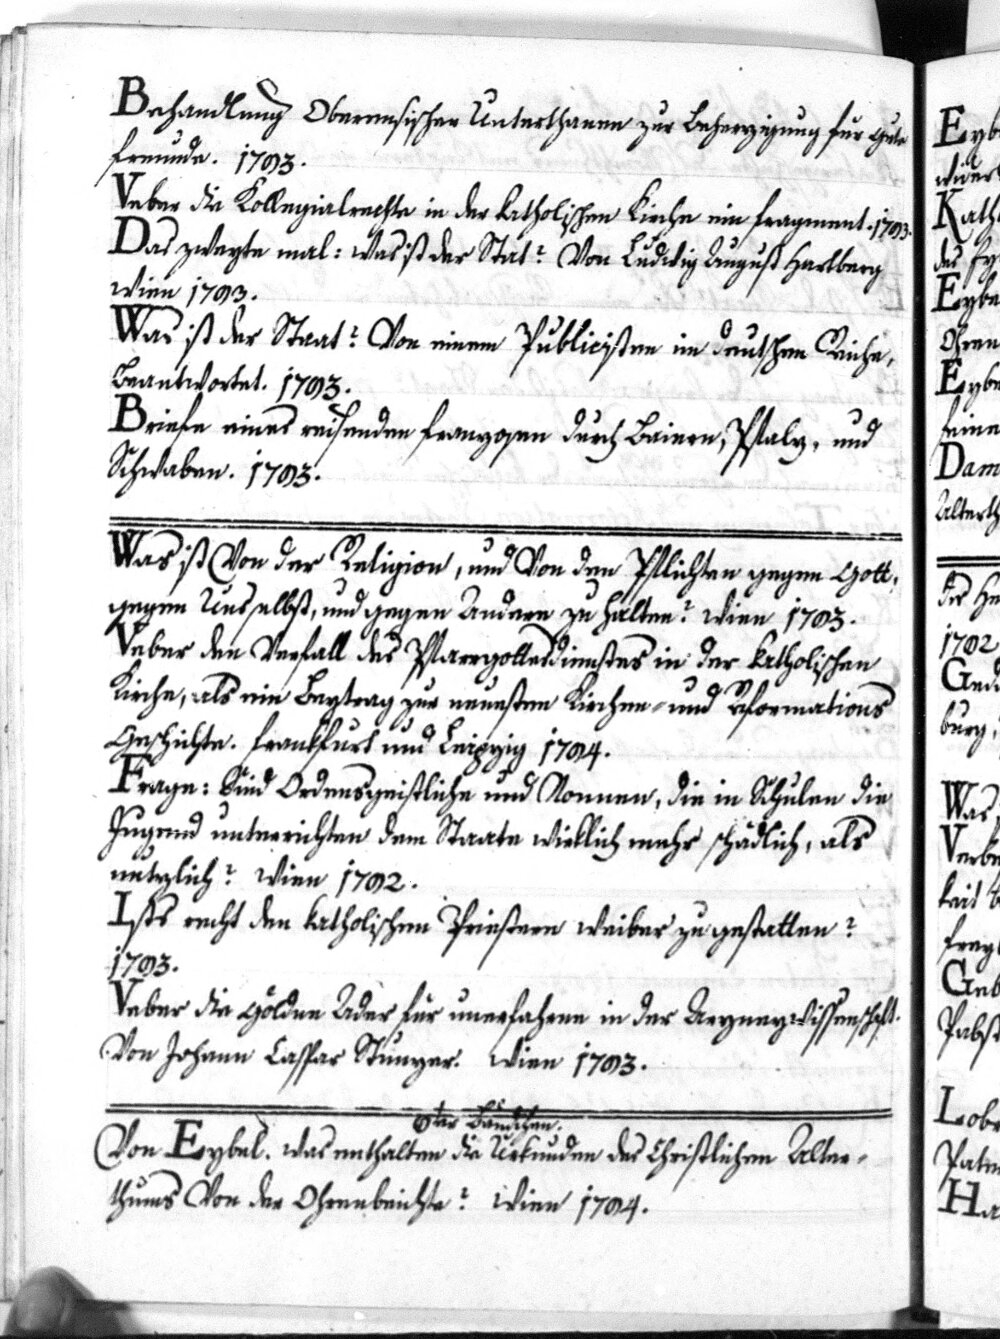 Behandlung Oberensischer Unterthanen zur Beherzigung für gute
freunde. 1783.
Veber die Kollegialrechte in der katholischen Kirche ein fragment. 1783.
Das zweyte mal: was ist der Stat? Von Ludwig August Hartberg
Wien 1783.
Was ist der Staat? Von einem Publicisten im deutschen Reiche,
beantwortet. 1783.
Briefe eines reisenden franzosen durch Baiern, Pfalz, und
Schwaben. 1783.
Was ist Von der Religion, und Von den Pflichten gegen Gott,
gegen Uns selbst, und gegen Andere zu halten? Wien 1783.
Veber den Verfall des Pfarrgottesdienstes in der katholischen
Kirche, als ein Beytrag zur neuesten Kirchen- und Reformations
Geschichte. frankfurt und Leipzig 1784.
Frage: Sind Ordensgeistliche und Nonnen, die in Schulen die
Jugend unterrichten dem Staate wirklich mehr schädlich, als
nützlich? Wien 1782.
Ists recht den katholischen Priestern weiber zu gestatten?
1783.
Veber die golden Ader für unerfahrne in der Arzneywissenschaft.
Von Johann Caspar Stunzer. Wien 1783.
6ter Bändchen.
Von Eybel. was enthalten die Urkunden des christlichen Alter-
thums Von der Ohrenbeichte? Wien 1784.
Eyb
wider
Kath
des
Eybe
Ohren
Eybe
seine
Dam
Alterth
1782
burg,
Was
keit
frag
Geb
Pabst
Lobr
Ha